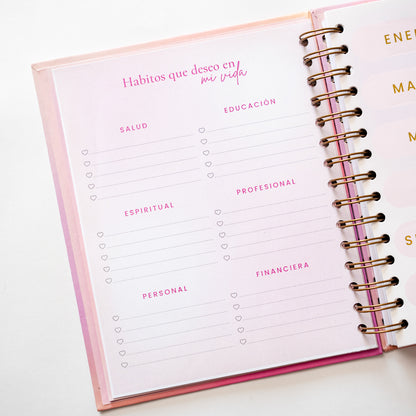 Habitos que deseo en
mi vida
SALUD
EDUCACIÓN
ESPIRITUAL
PROFESIONAL
PERSONAL
FINANCIERA
ENE
MA
M
S